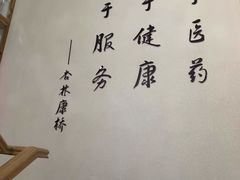 医药
健康
于服务
——杏林康桥